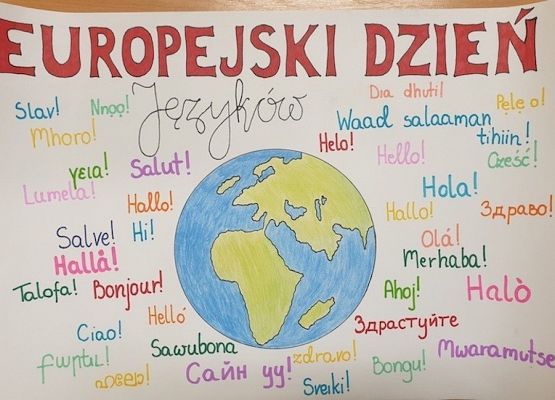 EUROPEJSKI DZIEŃ
Języków
Slav!
Nnọọ!
Dia dhuti!
Pẹlẹ o!
Mhoro!
Helo!
Waad salaaman
tihiin!
γεια!
Salut!
Hello!
Cześć!
Lumela!
Hallo!
Hola!
Hallo!
Здраво!
Salve!
Hi!
Olá!
Hallå!
Merhaba!
Talofa!
Bonjour!
Ahoj!
Halò
Helló
Здрастуйте
Ciao!
Sawubona
zdravo!
Mwaramutse
Сайн уу!
Bongu!
Sveiki!